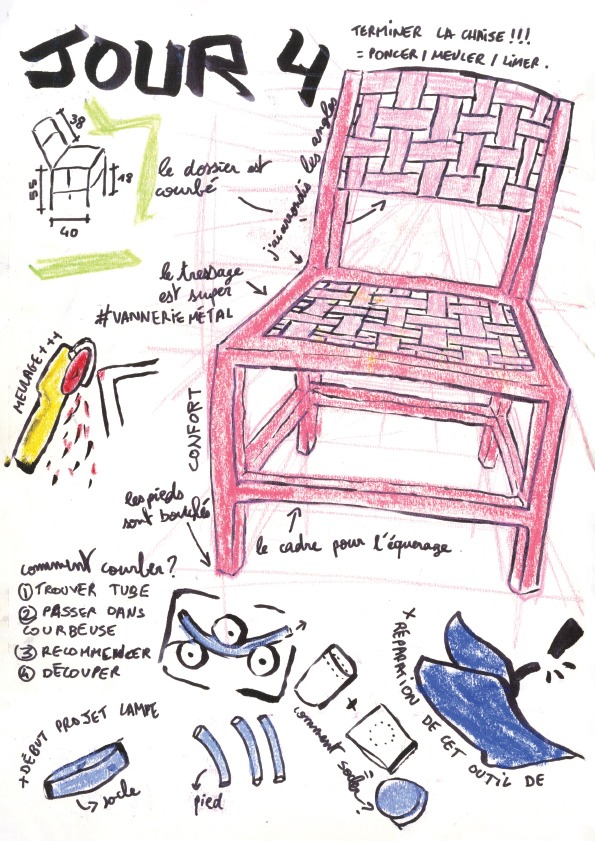 JOUR 4
TERMINER LA CHAISE !!!
= PONCER / MEULER / LIMER.
38
55
18
40
le dossier est
courbé
j'ai arrondi les angles
le tressage
est super
#VANNERIE MÉTAL
MEULAGE +++
CONFORT
les pieds
sont bouchés
le cadre pour l'équerrage.
comment courber ?
① TROUVER TUBE
② PASSER DANS
COURBEUSE
③ RECOMMENCER
④ DÉCOUPER
+ DÉBUT PROJET LAMPE
socle
pied
+
comment souder ?
=
+ RÉPARATION DE CET OUTIL DE